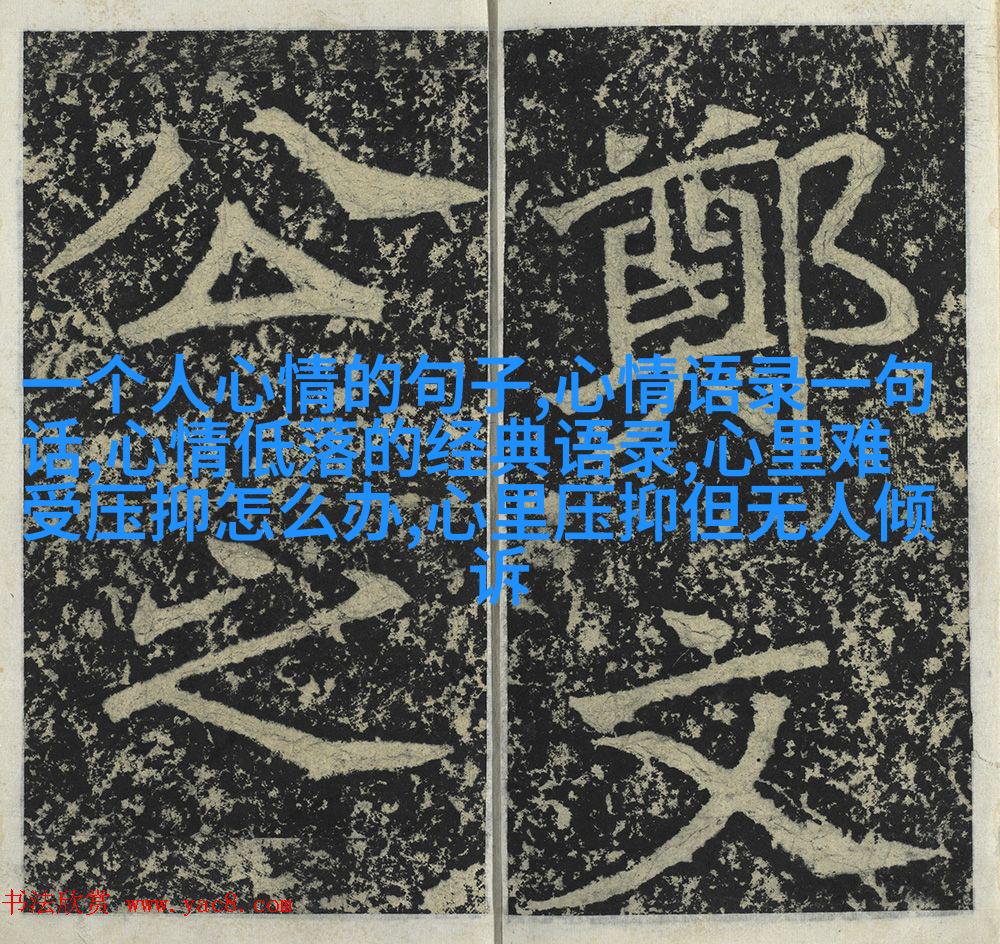 鄭文
公之
一个人心情的句子,心情语录一句
话,心情低落的经典语录,心里难
受压抑怎么办,心里压抑但无人倾
诉
书法欣赏 www.yac8.com